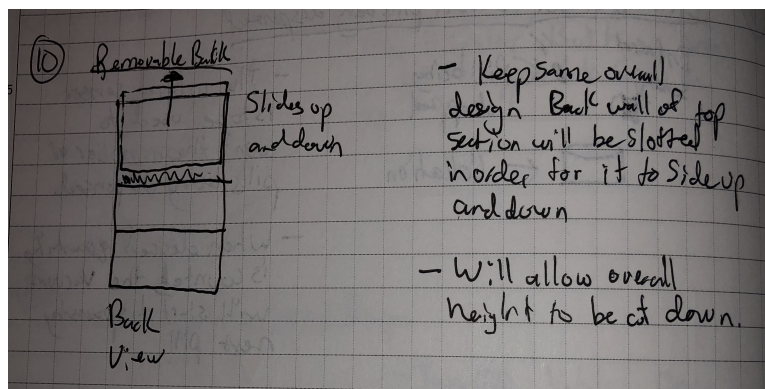 10
Removable Back
Slides up
and down
Back
View
- Keep same overall
design Back wall of top
section will be slotted
in order for it to Side up
and down
- Will allow overall
height to be cut down.